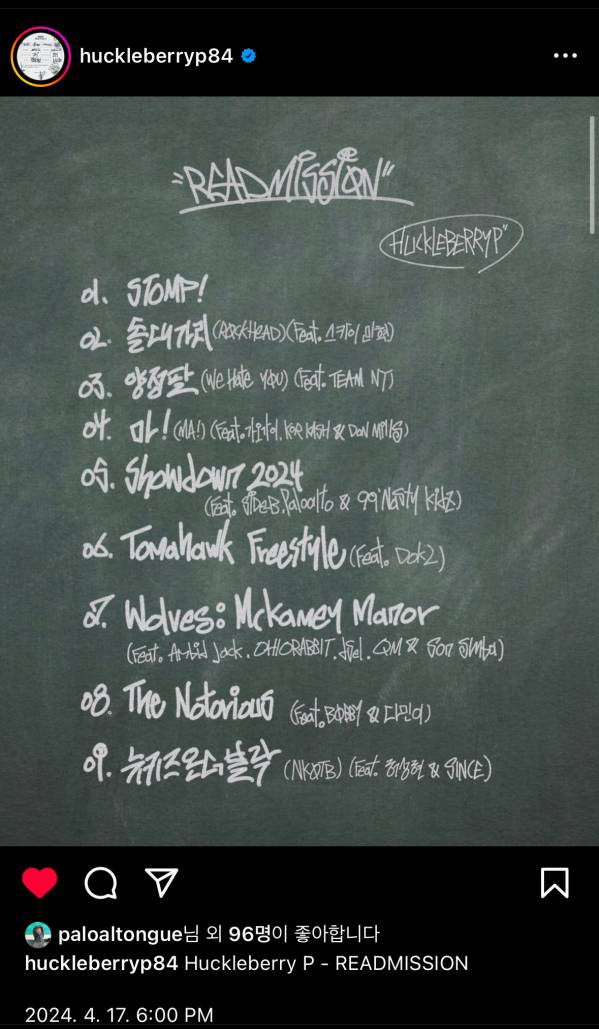 huckleberryp84
"READMISSION"
HUCKLEBERRY P"
01. STOMP!
02. 돌대가리 (ROCKHEAD) (Feat. 스카이민혁)
03. 양절판 (We Hate YOU) (Feat. TEAM NY)
04. 마! (MA!) (Feat. KOR KASH & DON MILLS)
05. Showdown 2024
(Feat. SIDE-B, Paloalto & 99' Nasty Kidz)
06. Tomahawk Freestyle (Feat. Dok2)
07. Wolves: Mckamey Manor
(Feat. Ambid Jack, OHIORABBIT, dsel, QM & Son Simba)
08. The Notorious (Feat. BOBBY & 다민이)
09. 뉴키즈온더블락 (NKOTB) (Feat. 허성현 & SINCE)
paloaltongue님 외 96명이 좋아합니다
huckleberryp84 Huckleberry P - READMISSION
2024. 4. 17. 6:00 PM